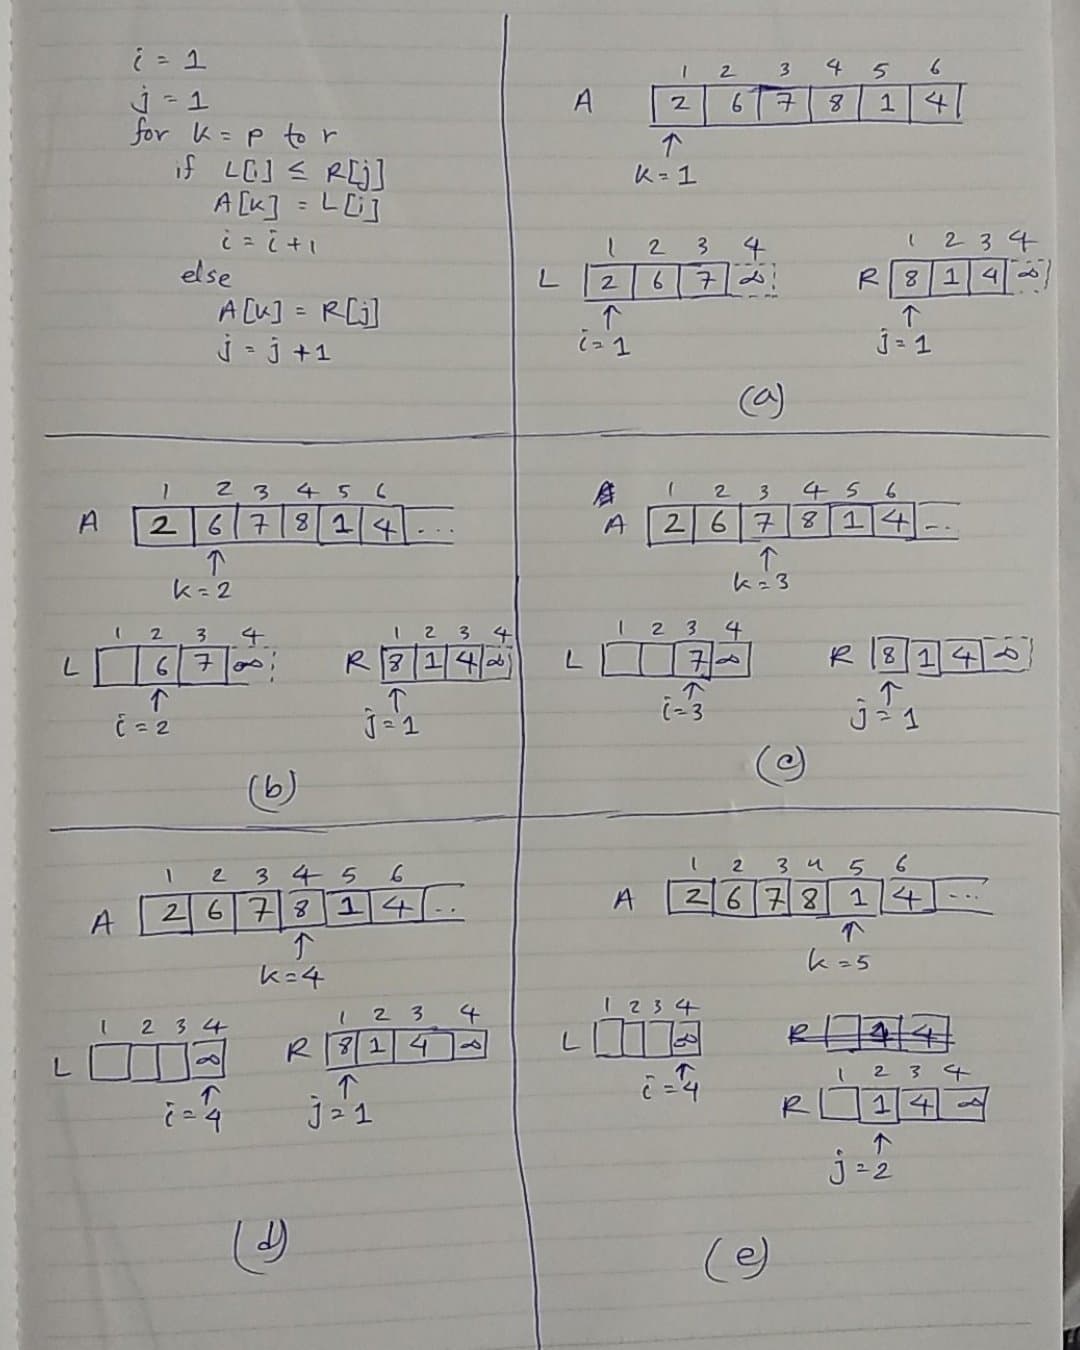 i = 1
j = 1
for k = p to r
if L[i] ≤ R[j]
A[k] = L[i]
i = i + 1
else
A[k] = R[j]
j = j + 1
1 2 3 4 5 6
A 2 6 7 8 1 4
↑
k = 1
1 2 3 4
L 2 6 7 ∞
↑
i = 1
1 2 3 4
R 8 1 4 ∞
↑
j = 1
(a)
1 2 3 4 5 6
A 2 6 7 8 1 4 ...
↑
k = 2
1 2 3 4
L 6 7 ∞
↑
i = 2
1 2 3 4
R 8 1 4 ∞
↑
j = 1
(b)
1 2 3 4 5 6
A 2 6 7 8 1 4 ...
↑
k = 3
1 2 3 4
L 7 ∞
↑
i = 3
R 8 1 4 ∞
↑
j = 1
(c)
1 2 3 4 5 6
A 2 6 7 8 1 4 ..
↑
k = 4
1 2 3 4
L ∞
↑
i = 4
1 2 3 4
R 8 1 4 ∞
↑
j = 1
(d)
1 2 3 4 5 6
A 2 6 7 8 1 4 ...
↑
k = 5
1 2 3 4
L ∞
↑
i = 4
1 2 3 4
R 1 4 ∞
↑
j = 2
(e)